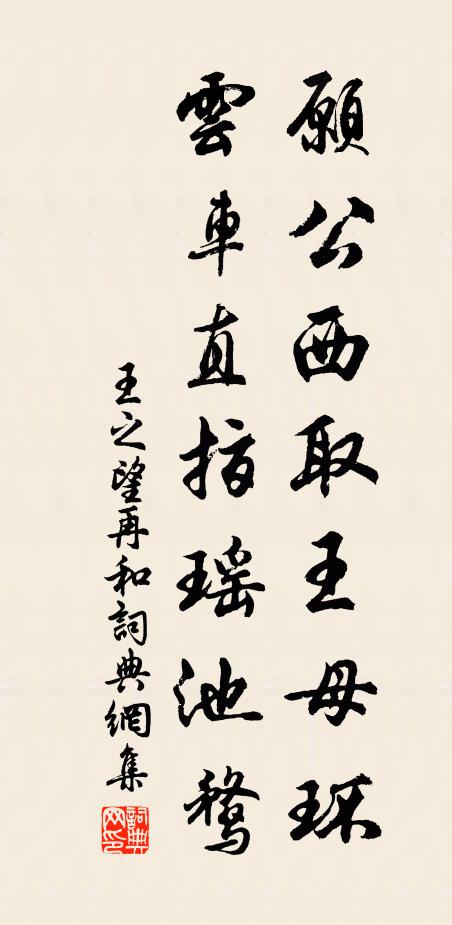 願公西取王母環
雲車直指瑶池鶩
王之望再和詞典網集
詞典網印